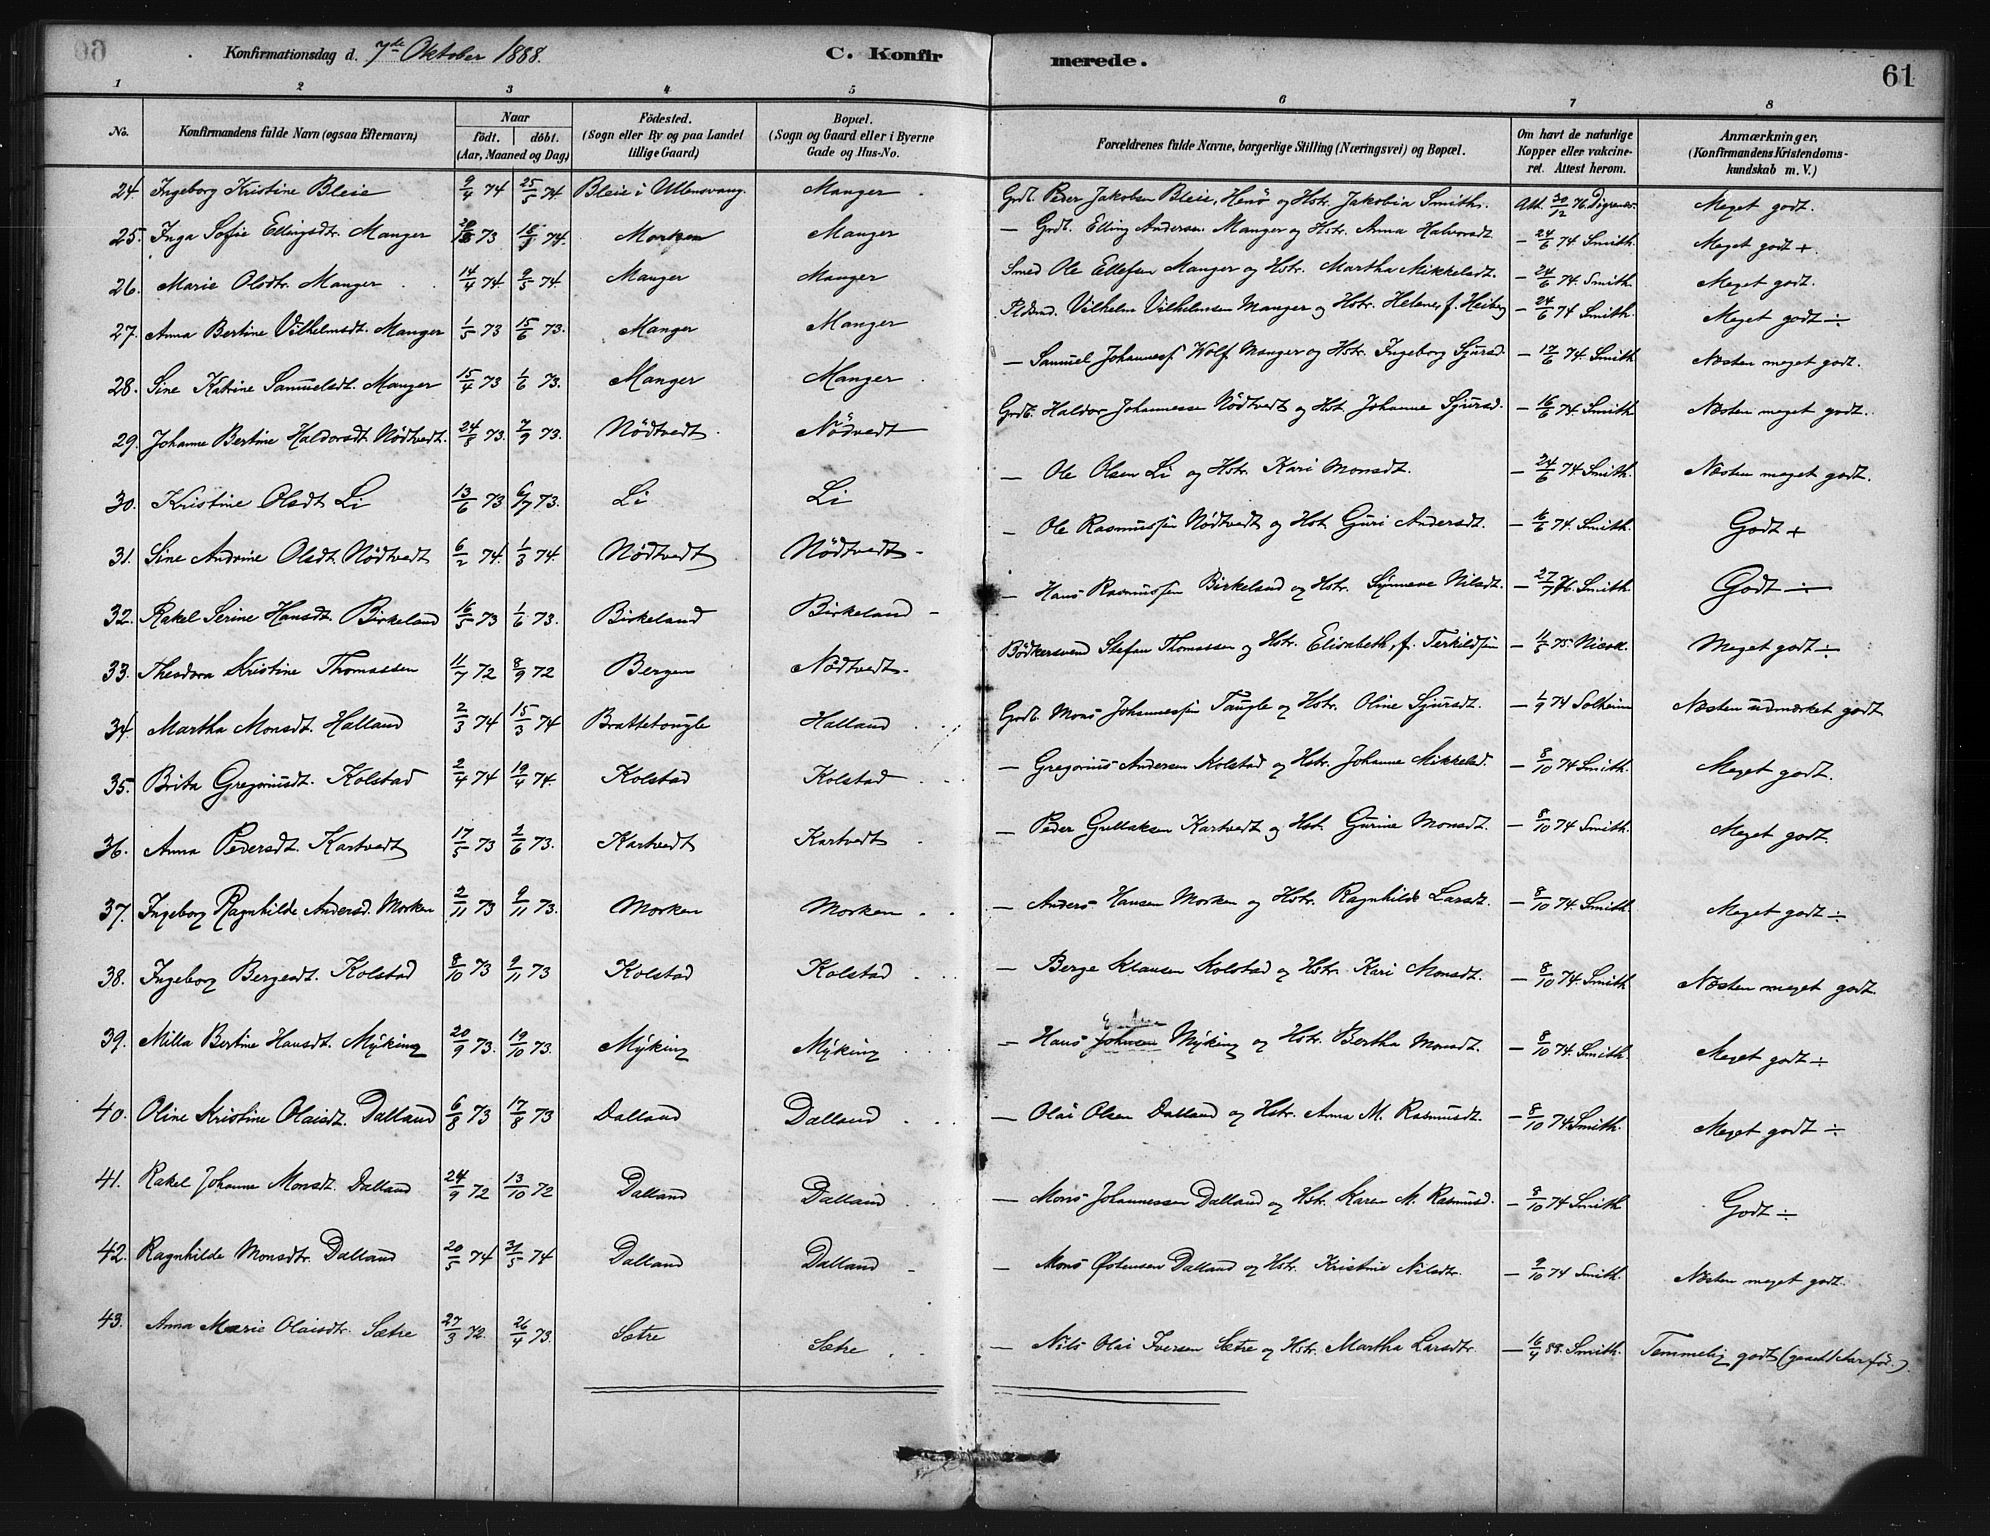 Konfirmationsdag d. 7de Oktober 1888. C. Konfirmerede. 61
1 2 3 4 5 6 7 8
No. Konfirmandens fulde Navn (ogsaa Efternavn) Naar født. døbt. (Aar, Maaned og Dag) Fødested. (Sogn eller By og paa Landet tillige Gaard) Bopæl. (Sogn og Gaard eller i Byerne Gade og Hus-No. Forældrenes fulde Navne, borgerlige Stilling (Næringsvei) og Bopæl. Om havt de naturlige Kopper eller vakcineret. Attest herom. Anmærkninger, (Konfirmandens Kristendomskundskab m. V.)
24. Ingeborg Kristine Bleie 9/4 74 25/5 74. Bleie i Ullensvang. Manger Grdb. Peder Jakobsen Bleie, Henø og Hstr. Jakobia Smith. Att. 30/12 76 Meget godt.
25. Inga Sofie Ellingsdtr. Manger 73 74. Morken Manger — Grdb. Elling Andersen Manger og Hstr. Anna Halvorsdt. — 24/6 74 Smith. Meget godt +.
26. Marie Olsdtr. Manger 14/4 74 9/5 74. Manger Manger Smed Ole Ellefsen Manger og Hstr. Martha Mikkelsdt. — 24/6 74 Smith. Meget godt.
27. Anna Bertine Vilhelmsdt. Manger 1/5 73 15/6 73. Manger Manger Vilhelm Vilhelmsen Manger og Hstr. Helene, f. Heiberg — 24/6 74 Smith. Meget godt ÷
28. Sine Katrine Samuelsdt. Manger 15/4 73 1/6 73. Manger Manger — Samuel Johannesf Wolf Manger og Hstr. Ingeborg Sjursd. — 17/6 74. Smith Næsten meget godt.
29. Johanne Bertine Haldorsdt Nödtvedt. 24/8 73. 7/9 73. Nödtvedt. Nödvedt Grdb. Haldor Johannessen Nödtvedt og Hst. Johanne Sjursd. — 16/6 74 Smith. Næsten meget godt.
30. Kristine Olsdt Li 13/6 73 6/7 73. Li Li — Ole Olsen Li og Hstr. Kari Monsdt. — 24/6 74 Smith. Næsten meget godt.
31. Sine Andrine Olsdt. Nödtvedt 6/2 74. 1/3 74. Nödtvedt Nödtvedt — Ole Rasmussen Nödtvedt og Hst. Guri Andersdt. — 6/6 74. Smith. Godt +
32. Rakel Serine Hansdt. Birkeland 16/5 73 1/6 73. Birkeland Birkeland — Hans Rasmussen Birkeland og Hstr. Synneve Nilsdt. — 27/7 76. Smith. Godt ÷
33. Theodora Kristine Thomassen 11/7 72 8/9 72 Bergen Nödtvedt. Bödkersvend Stefan Thomassen og Hstr. Elisabeth, f. Terkildsen 75. Meget godt ÷
34. Martha Monsdt. Halland 2/3 74 15/3 74 Brattetougle Halland Grdb. Mons Johannessen Tougle og Hstr. Oline Sjursdt. — 1/9 74 Solheim Næsten udmærket godt
35. Brita Gregoriusdt. Kolstad 2/4 74 19/4 74. Kolstad Kolstad — Gregorius Andersen Kolstad og Hstr. Johanne Mikkelsd. — 8/10 74 Smith. Meget godt.
36. Anna Pedersdt. Kartvedt 17/5 73 2/6 73. Kartvedt Kartvedt — Peder Gullaksen Kartvedt og Hst. Gurine Monsdt. — 8/10 74 Smith. Meget godt.
37. Ingeborg Ragnhilde Andersd. Morken 2/11 73 9/11 73. Morken Morken — Anders Hansen Morken og Hstr. Ragnhilde Larsdt. — 8/10 74. Smith. Meget godt ÷
38. Ingeborg Bergesdt. Kolstad 8/10 73 9/11 73 Kolstad Kolstad — Berge Klausen Kolstad og Hstr. Kari Monsdt. — 8/10 74. Smith. Næsten meget godt.
39. Milla Bertine Hansdt. Mÿking 20/9 73. 19/10 73. Mÿking Mÿking — Hans Johnsen Mÿking og Hstr. Bertha Monsdt. — 8/10 74. Smith. Meget godt ÷
40. Oline Kristine Olaisdt. Dalland 6/8 73 17/8 73 Dalland Dalland — Olai Olsen Dalland og Hstr. Anna M. Rasmusdt. — 8/10 74 Smith. Meget godt ÷
41. Rakel Johanne Monsdt. Dalland 24/9 72 13/10 72 Dalland Dalland — Mons Johannessen Dalland og Hstr. Karen M. Rasmusd. — 8/10 74 Smith Godt ÷
42. Ragnhilde Monsdtr. Dalland 20/5 74 31/5 74 Dalland Dalland — Mons Östensen Dalland og Hstr. Kristine Nilsdtr. — 9/10 74 Smith. Næsten meget godt.
43. Anna Marie Olaisdtr. Sætre 27/3 72. 26/4 73. Sætre Sætre — Nils Olai Iversen Sætre og Hstr. Martha Larsdtr. — 16/4 88. Smith. Temmelig godt